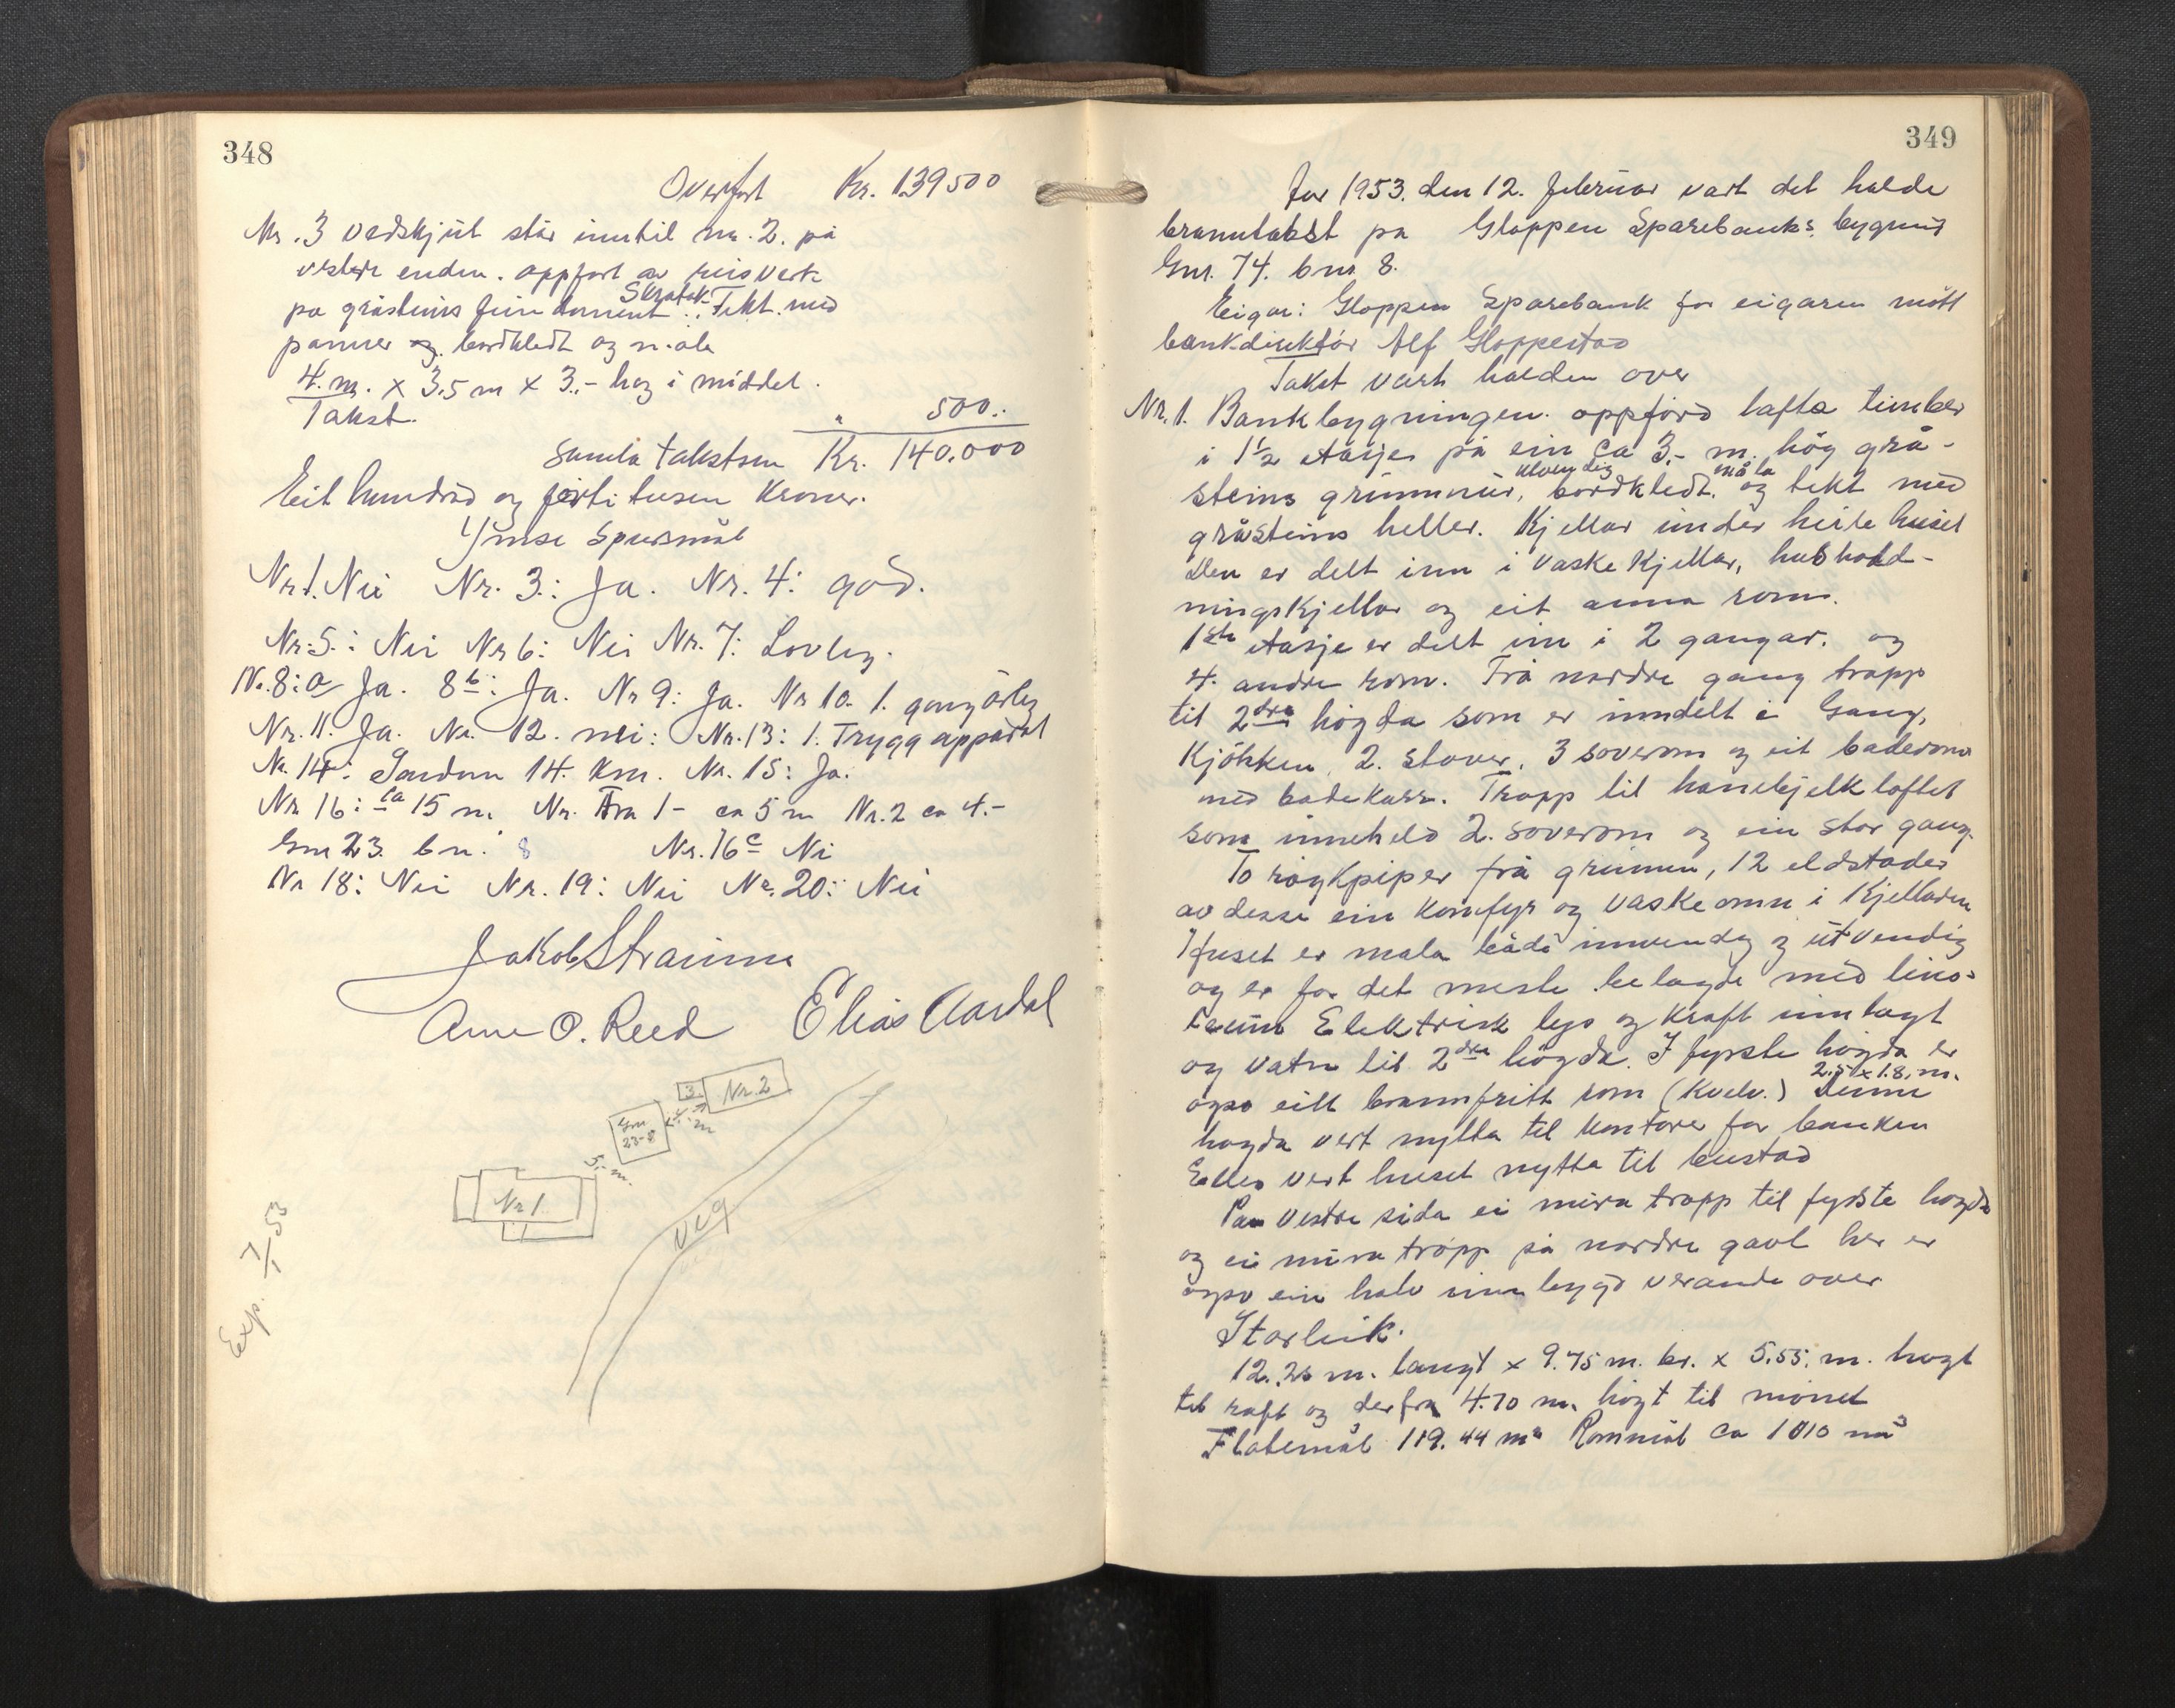 348
Overfort Kr. 139500
Nr. 3 vedskjul står inntil nr. 2. på
vestre enden. oppfort av reisverk
på gråsteins fundament. Skratak. Tekt med
panner og bordkledt og måla
4. m. x 3.5 m x 3.- høg i middel.
Takst. " 500.-
Samla takstsum Kr. 140.000
Eit hundred og førti tusen Kroner.
Ymse Spursmål
Nr 1. Nei Nr. 3.: Ja. Nr. 4: god.
Nr. 5.: Nei Nr 6: Nei Nr. 7: Lovleg.
Nr. 8: a Ja. 8b: Ja. Nr 9: Ja. Nr 10. 1. gong årleg
Nr. 11. Ja. Nr. 12. nei: Nr. 13: 1. Trygg apparat
Nr. 14: Sandane 14. km. Nr. 15: Ja.
Nr 16: ca 15 m. Nr. Fra 1- ca 5 m Nr. 2 ca 4.-
Gnr 23. bn. 8 Nr. 16c Nei
Nr 18: Nei Nr. 19: Nei Nr. 20: Nei
Jakob Straume
Arne O. Reed Elias Aardal
3. Nr. 2
Gnr. 23-8
4.- m
5.- m.
Nr 1
veg
Exp. 7/1 53
349
År 1953. den 12. februar vart det halde
branntakst på Gloppen Sparebanks bygning
Gnr. 74. bnr 8.
Eigar: Gloppen Sparebank for eigaren møtt
bankdirektør Alf Gloppestad
Takst vart halden over
Nr. 1. Bankbygningen. oppførd lafta timber
i 1½ etasjer på ein ca 3.- m. høg grå-
steins grunnmur, utvendig bordkledt, måla og tekt med
gråsteins heller. Kjellar under heile huset
den er delt inn i vaskekjellar, hushald-
ningskjellar og eit anna rom.
1ste etasje er delt inn i 2 gangar. og
4. andre rom. Frå nordre gang trapp
til 2dre høgda som er inndelt i Gang,
Kjøkken, 2. stover, 3 soverom og eit baderom
med badekarr. Trapp til hanebjelkloftet
som inneheld 2. soverom og ein stor gang.
To røykpiper frå grunnen, 12 eldstader
av desse ein komfyr og vaskeomn i kjellaren
Huset er mala både innvendig og utvendig
og er for det meste belagde med lino-
leum Elektrisk lys og kraft innlagt
og vatn til 2dre høgda. I fyrste høgda er
ogso eitt brannfritt rom (Kvelv.) 2.5 x 1.8. m. Denne
høgda vert nytta til kontorer for banken
Elles vert huset nytta til bustad
Paa vestre sida ei mura trapp til fyrste høgda
og ei mura trapp på nordre gavl her er
ogso ein halv innbygd veranda over
Storleik.
12.25 m. langt x 9.75 m. br. x 5.55. m. høgt
til raft og derfra 4.70 m. høgt til mønet
Flatemål 119.44 m² Rommål ca 1010 m³